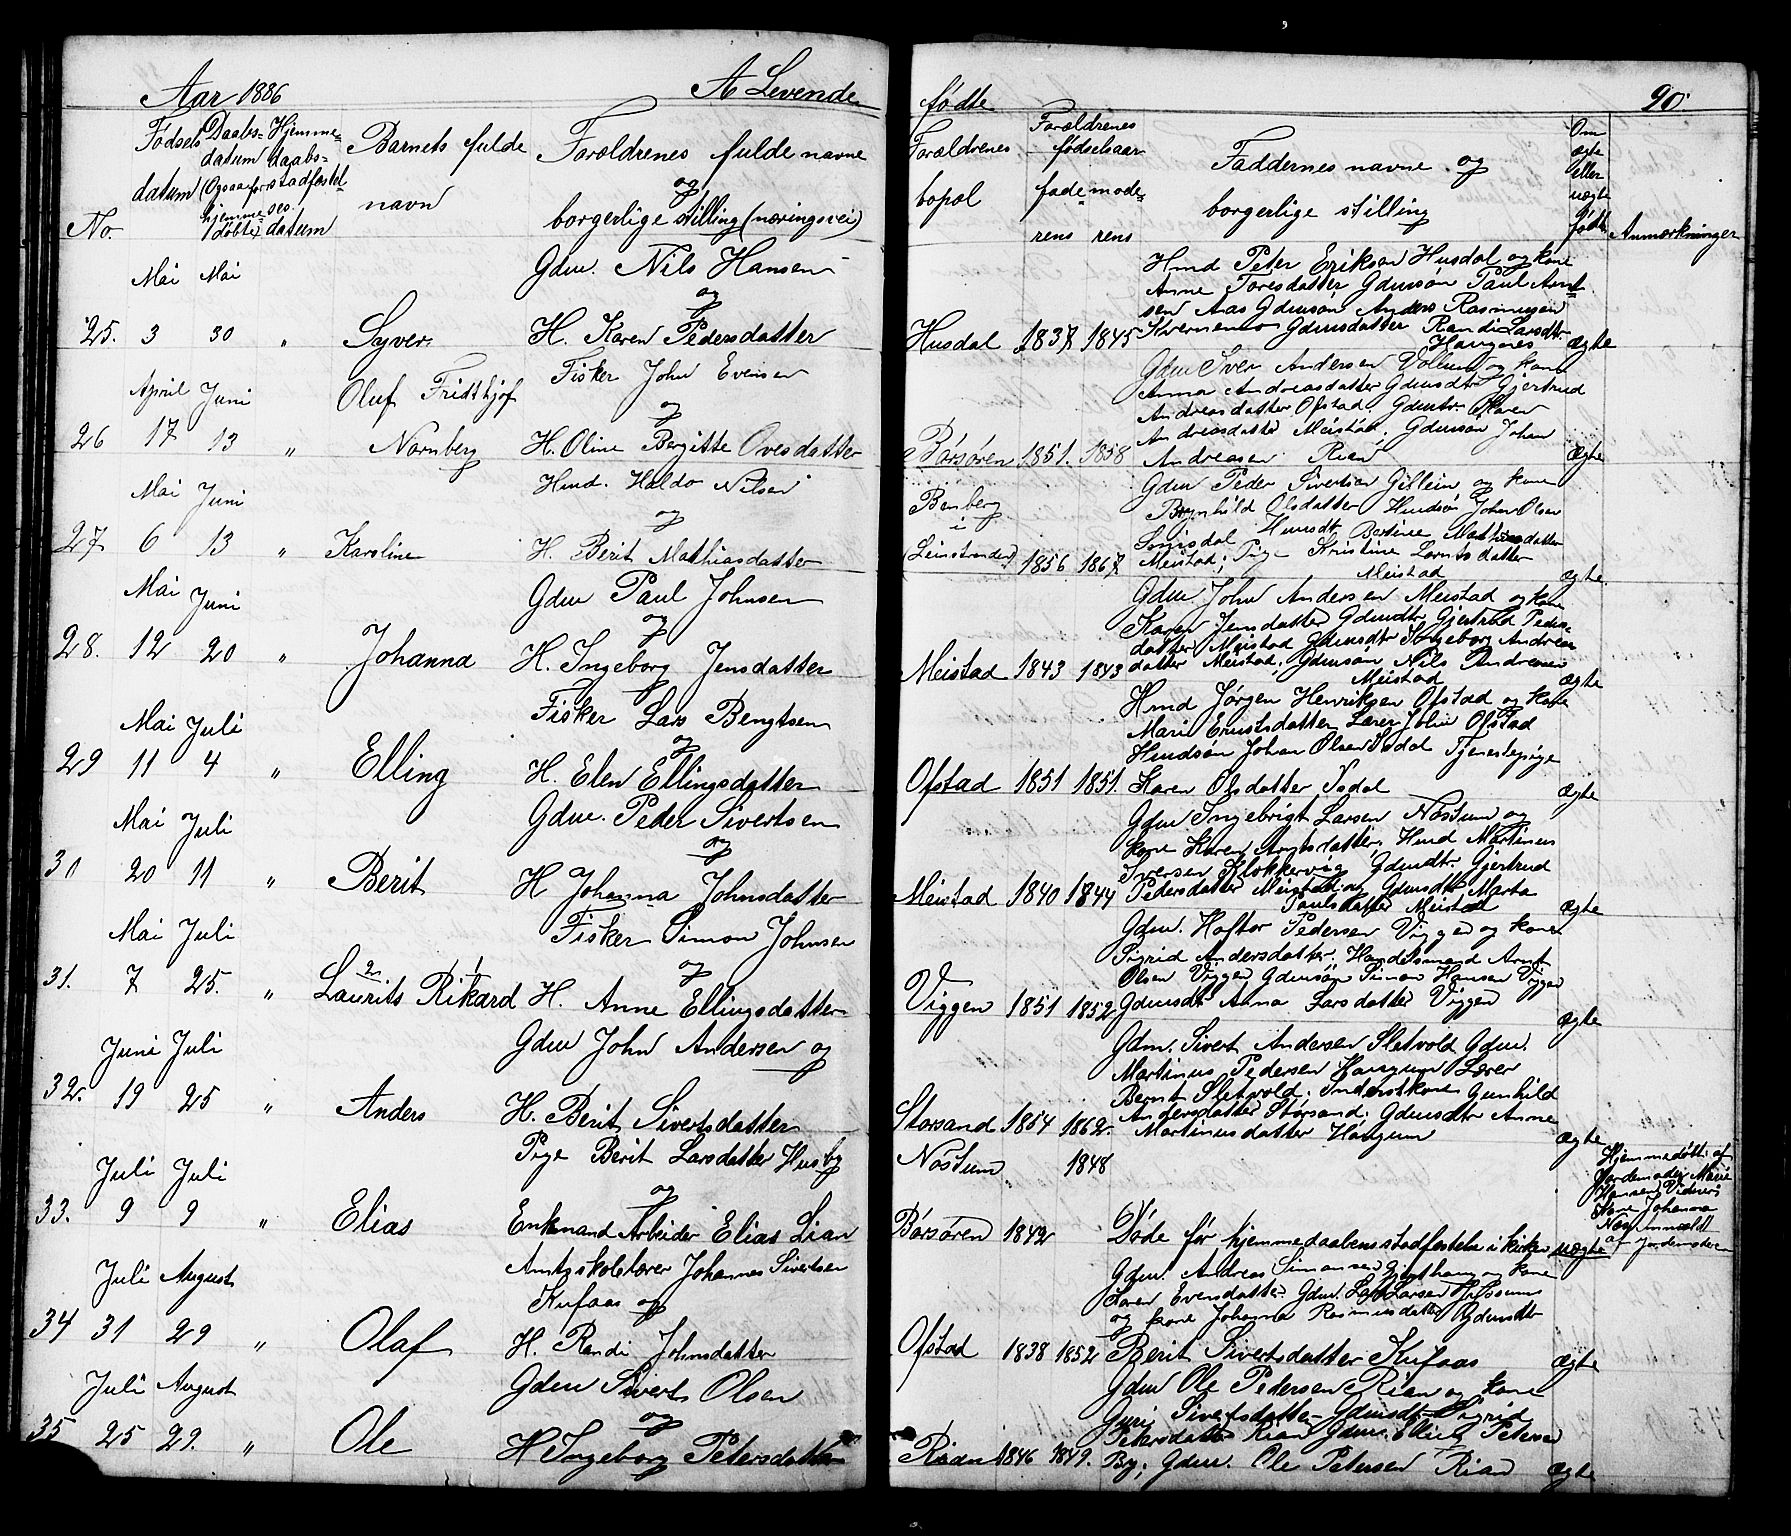 Aar 1886
A Levende
No.
Fødsels
datum
Daabs-
datum
(Ogsaa for
hjemme-
døbte)
Hjemme-
daabs-
stadfæstel-
ses-
datum
Barnets fulde
navn
Forældrenes fulde navne
og
borgerlige stilling (næringsvei)
Mai Mai
Gdm. Nils Hansen
og
25. 3 30 " Syver H. Karen Pedersdatter
April Juni Oluf Fridthjof
Fisker John Evensen
og
26 17 13 " Nornberg H. Oline Bergitte Ovesdatter
Mai Juni
Hmd. Haldo Nilsen
og
27 6 13 " Karoline H. Berit Mathiasdatter
Mai Juni
Gdm Paul Johnsen
og
28. 12 20 " Johanna H. Ingeborg Jensdatter
Mai Juli
Fisker Lars Bengtsen
og
29 11 4 " Elling H. Elen Ellingsdatter
Mai Juli
Gdm. Peder Sivertsen
og
30 20 11 " Berit H Johanna Johnsdatter
Mai Juli
Fisker Simon Johnsen
2 1 og
31. 7 25. " Laurits Rikard H. Anne Ellingsdatter
Juni Juli
Gdm John Andersen og
32. 19 25 " Anders H. Berit Sivertsdatter
Juli Juli
Pige Berit Larsdatter Husby
og
33. 9 9 " Elias Enkemand Arbeider Elias Lian
Juli August
Amtsskolelærer Johannes Sivertsen
Kufaas og
34 31 29 " Olaf H. Randi Johnsdatter
Juli August
Gdm Sivert Olsen
og
35 25 29. " Ole H Ingeborg Petersdatter
fødte
90
Forældrenes
bopæl
Forældrenes
fødselsaar
fade- mode-
rens rens
Faddernes navne og
borgerlige stilling
Om
ægte
eller
uægte
født
Anmærkninger
Hmd Peter Erikson Husdal og kone
Anne Toresdatter Gdmsøn Paul Arnt-
sen Aas Gdmsøn Anders Rasmussen
Husdal 1837 1845 Gdmsdatter Randi Larsdtr.
ægte
Gdm Iver Andersen Vollum og kone
Anna Andreasdatter Gdmsdtr Gjertrud
Andreasdatter Ofstad. Gdmdtr. Karen
Andreasdatter Meistad, Gdmsøn Johan
Børsøren 1851. 1858 Andreasen Rian ægte
Gdm Peder Sivertsen Gillein og kone
Brynhild Olsdatter Hmdsøn Johan Olsen
Benberg
i
(Leinstranden) 1856 1867 Hmdsdtr Bertine Mathiasdatter
Meistad; Pige Kristine Lorntsdatter
Meistad ægte
Gdm. John Andersen Meistad og kone
Karen Jensdatter Gdmdtr Gjertrud Peders-
datter Meistad Gdmsdtr Ingeborg Andreas-
Meistad 1843 1843 datter Meistad, Gdmsøn Nils Andresen
Meistad ægte
Hmd Jørgen Henriksen Ofstad og kone
Mari Ernstsdatter Lærer John Ofstad
Hmdsøn Johan Olsen Sødal Tjenestepige
Ofstad 1851 1851. Karen Olsdatter Sødal ægte
Gdm Ingebrigt Larsen Nostum og
kone Karen Arntsdatter, Hmd Martinus
Iversen Klokkervig Gdmdtr. Gjertrud
Meistad 1840 1844 Pedersdatter Meistad og Gdmsdtr Marta
Paulsdatter Meistad ægte
Gdm. Haftor Pedersen Viggen og kone
Sigrid Andersdatter. Handelsmand Arnt
Olsen Viggen Gdmsøn Simon Hansen Viggen
Viggen 1851 1852 Gdmsdtr Anna Larsdatter Viggen
ægte
Gdm. Sivert Andersen Sletvold Gdm.
Martinus Pedersen Haugum Lærer
Bernt Sletvold. Inderstkone Gunhild
Storsand 1854 1862. Andersdatter Storsand. Gdmsdtr Anne
Martinusdatter Haugum ægte
Nostum 1848
Børsøren 1842
Døde før hjemmedaabens stadfestelse i kirken uægte
Hjemmedøbt af
Jordemoder Marie
Hansen Vidnes:
Kone Johanna
Nos. Anmeldt
af Jordemoderen
Gdm. Andreas Simonsen og kone
Karen Evensdatter. Gdm. Lars Larsen
og kone Johanna Rasmusdatter Gdmsdtr
Ofstad 1838 1852 Berit Sivertsdatter Kufaas ægte
Gdm Ole Pedersen Rian og kone
Guri Sivertsdatter Gdmsdtr Sigrid
Petersdatter Rian Gdm. Petersen
Rian 1846 1849. By; Gdm. Ole Petersen Rian ægte